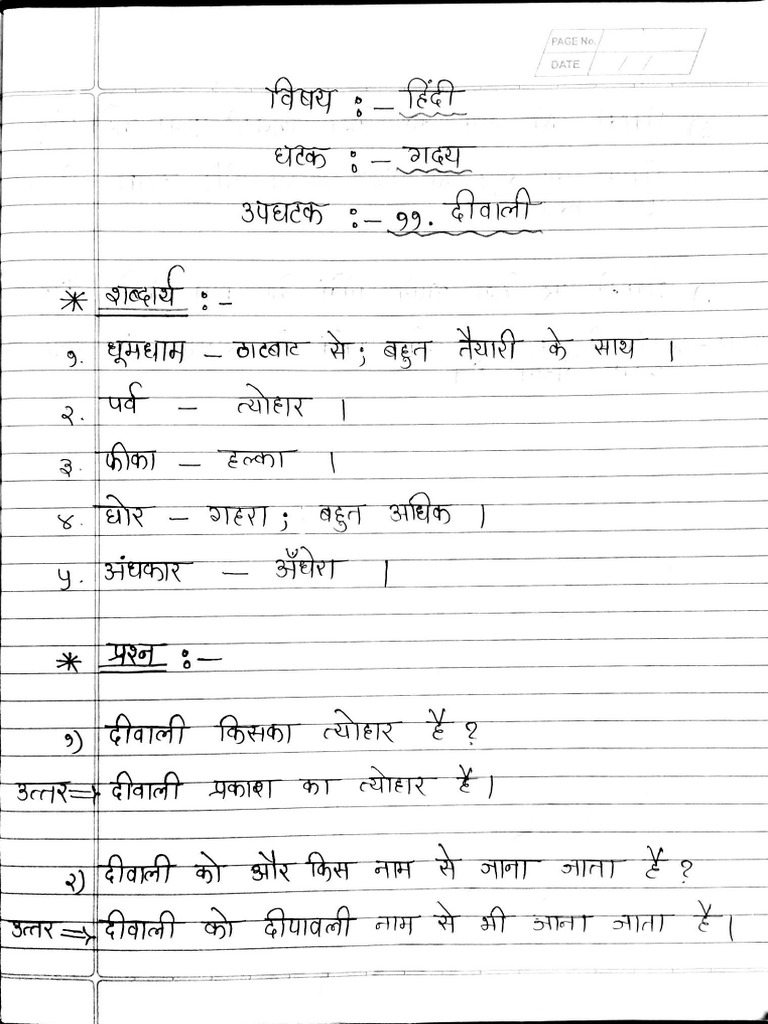 PAGE No.
DATE / /
विषय :- हिंदी
घटक :- गद्य
उपघटक :- ११. दीवाली
* शब्दार्थ :-
१. धूमधाम - ठाटबाट से ; बहुत तैयारी के साथ ।
२. पर्व - त्योहार ।
३. फीका - हल्का ।
४. घोर - गहरा ; बहुत अधिक ।
५. अंधकार - अँधेरा ।
* प्रश्न :-
१) दीवाली किसका त्योहार है ?
उत्तर ⇒ दीवाली प्रकाश का त्योहार है।
२) दीवाली को और किस नाम से जाना जाता है ?
उत्तर ⇒ दीवाली को दीपावली नाम से भी जाना जाता है।